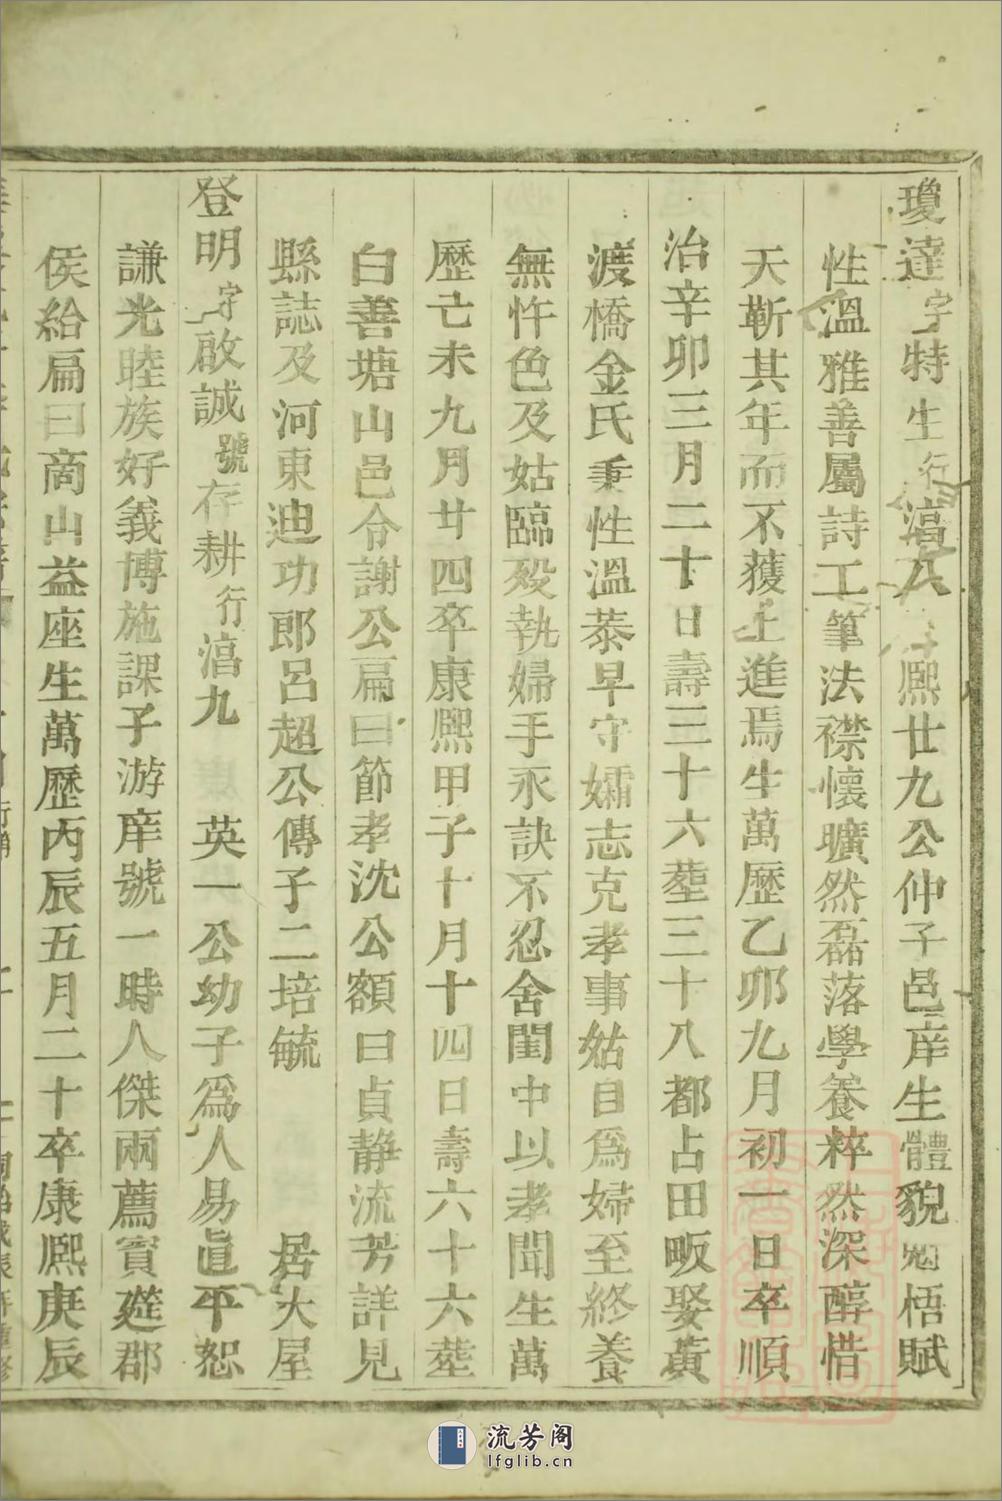 瓊達字特生行滈八 熙廿九公仲子邑庠生體貌魁梧賦
性溫雅善屬詩工筆法襟懷曠然磊落學養粹然深醇惜
天靳其年而不獲上進焉生萬歷乙卯九月初一日卒順
治辛卯三月二十日壽三十六塟三十八都占田畈娶黃
渡橋金氏秉性溫恭早守孀志克孝事姑自爲婦至終養
無忤色及姑臨歿執婦手永訣不忍舍閨中以孝聞生萬
歷己未九月廿四卒康熙甲子十月十四日壽六十六塟
白善塘山邑令謝公扁曰節孝沈公額曰貞静流芳詳見
縣誌及河東迪功郎呂超公傳子二培毓 居大屋
登明字啟誠號存耕行滈九 英一公幼子爲人易直平恕
謙光睦族好義博施課子游庠號一時人傑兩薦賓筵郡
侯給扁曰商山益座生萬歷丙辰五月二十卒康熙庚辰
流芳阁
lfglib.cn